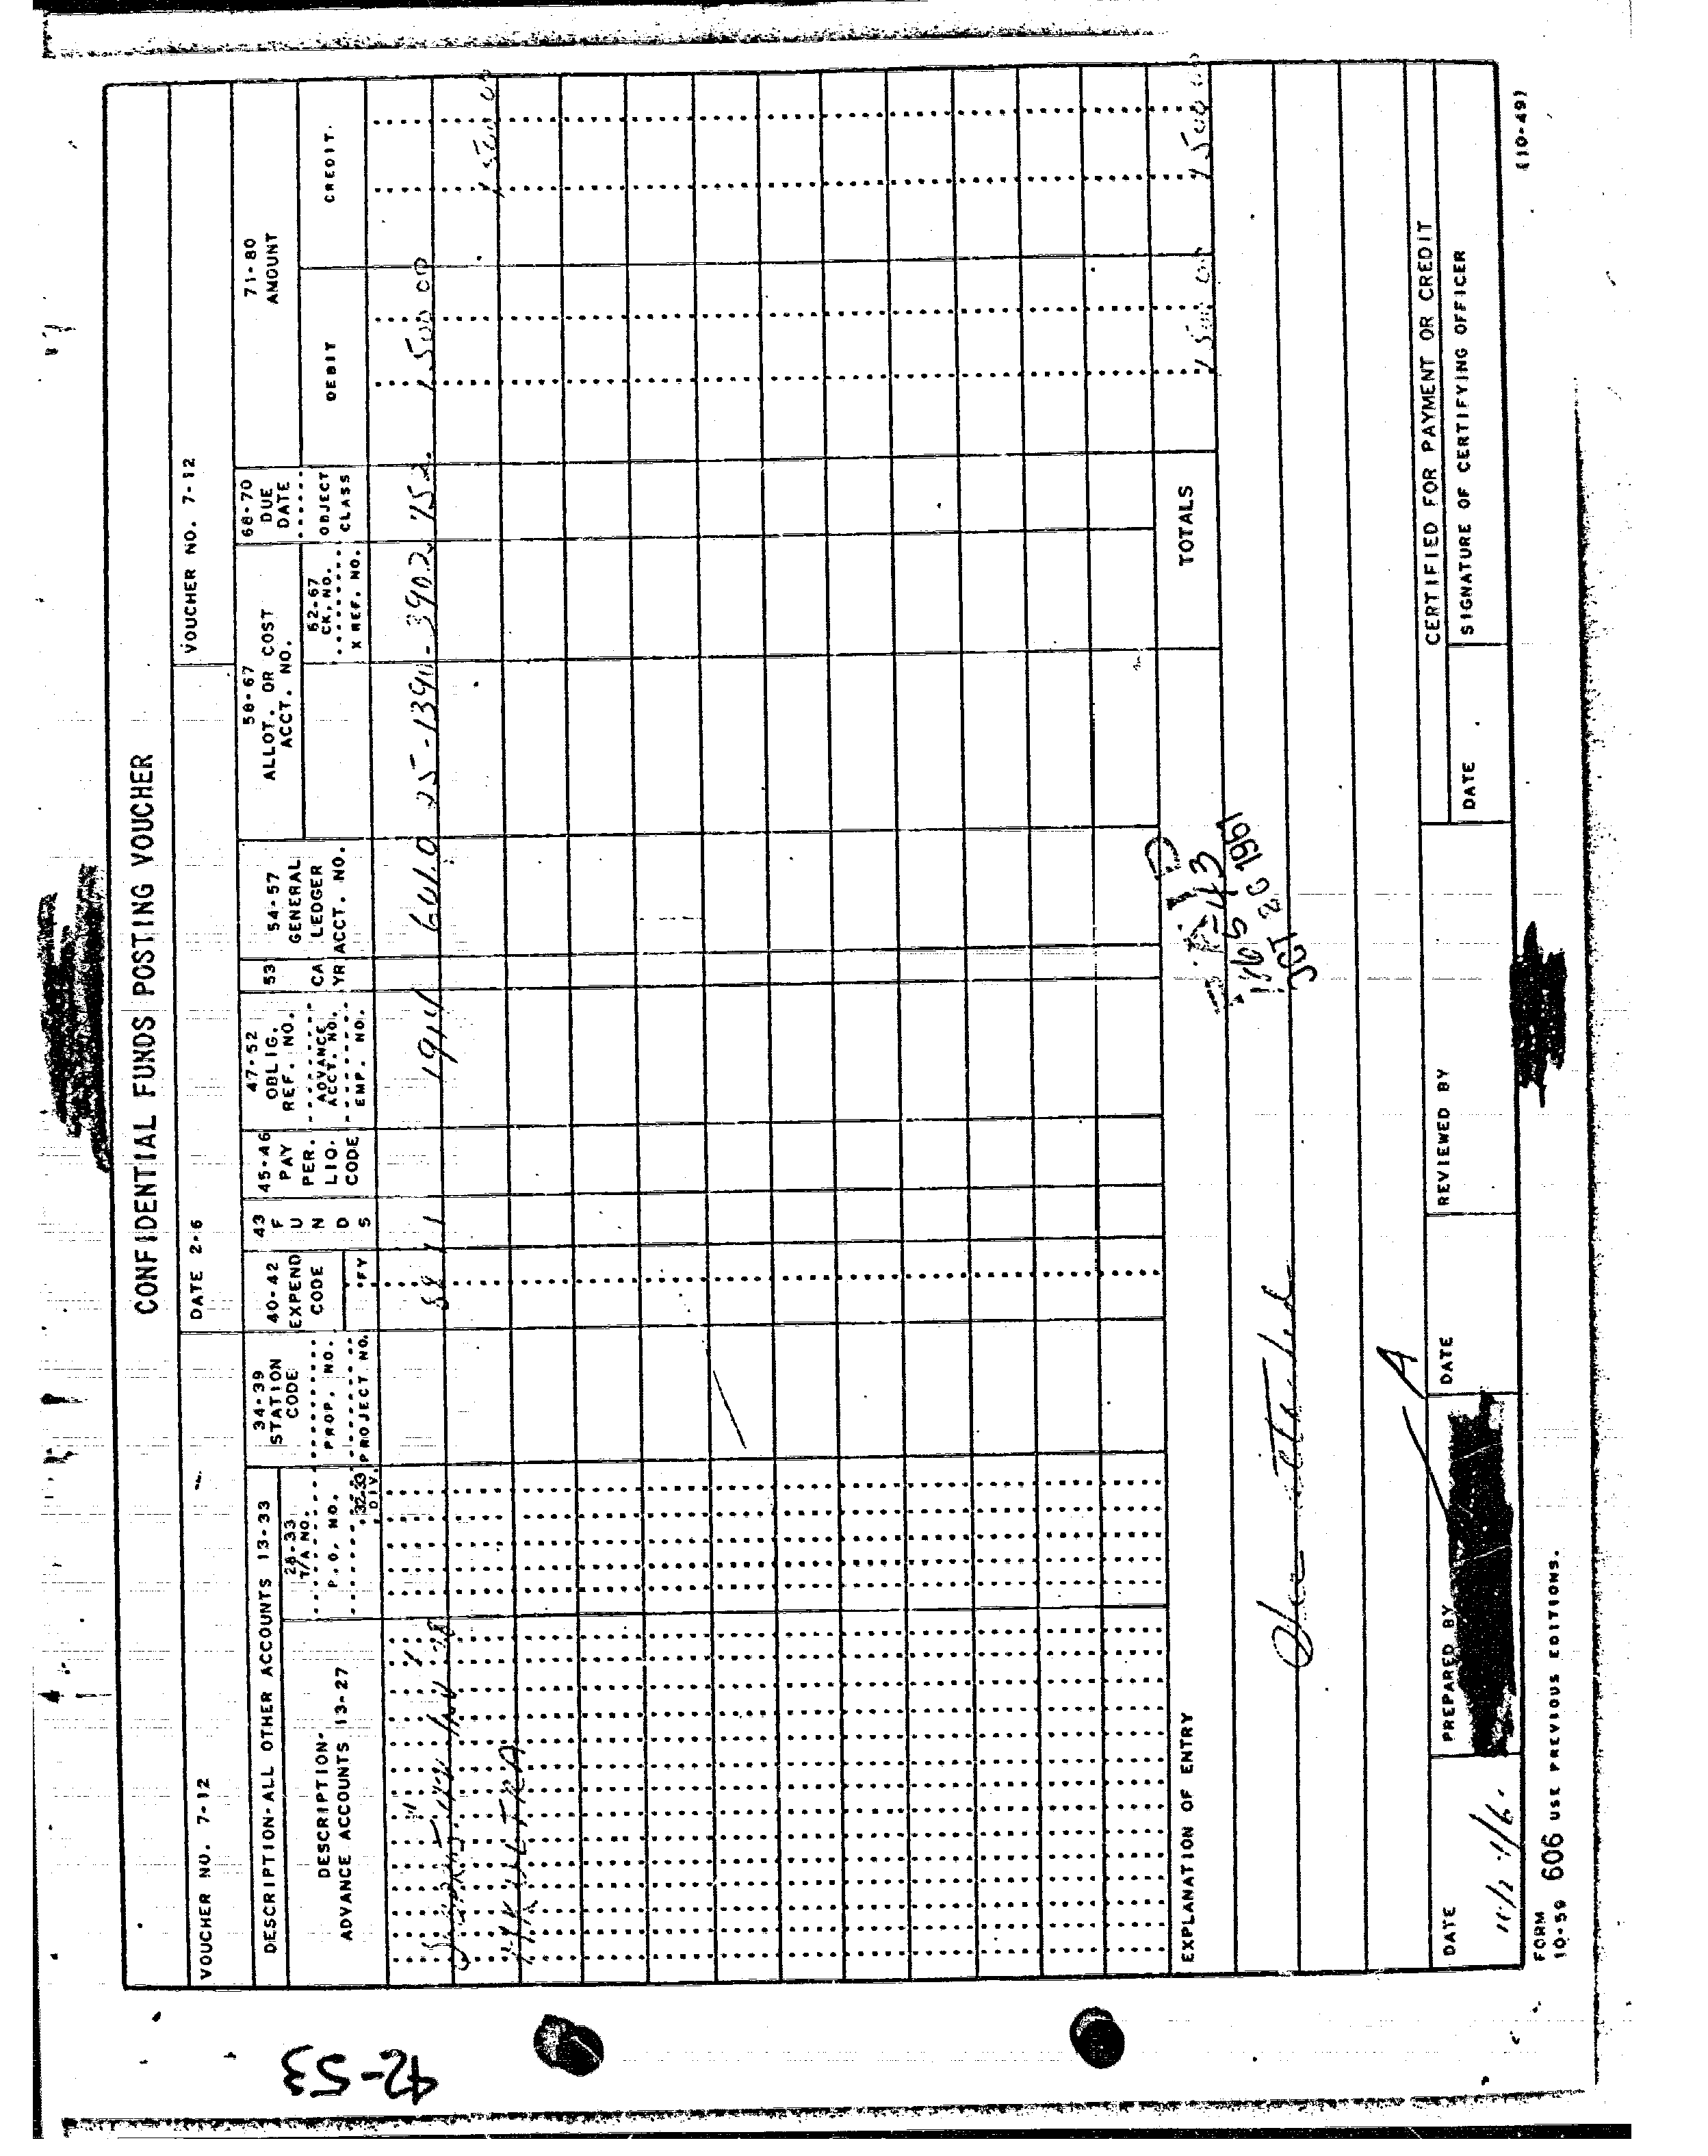 CONFIDENTIAL FUNDS POSTING VOUCHER
VOUCHER NO. 7-12
DATE 2-6
VOUCHER NO. 7-12
DESCRIPTION-ALL OTHER ACCOUNTS 13-33
DESCRIPTION-
ADVANCE ACCOUNTS 13-27
28-33
T/A NO.
P.O. NO.
32-33
DIV.
34-39
STATION
CODE
PROP. NO.
PROJECT NO.
40-42
EXPEND
CODE
FY
43
F
U
N
D
S
45-46
PAY
PER.
LIQ.
CODE
47-52
OBLIG.
REF. NO.
ADVANCE
ACCT. NO.
EMP. NO.
53
CA
YR
54-57
GENERAL
LEDGER
ACCT. NO.
58-67
ALLOT. OR COST
ACCT. NO.
62-67
CK. NO.
X REF. NO.
68-70
DUE
DATE
OBJECT
CLASS
71-80
AMOUNT
DEBIT
CREDIT
1 1914 601.0 25-1390-3902 752 1500 00
MKULTRA 1500 00
EXPLANATION OF ENTRY
TOTALS 1500 00 1500 00
1961
See attached
CERTIFIED FOR PAYMENT OR CREDIT
DATE
PREPARED BY
DATE
REVIEWED BY
DATE
SIGNATURE OF CERTIFYING OFFICER
FORM
10-59 606 USE PREVIOUS EDITIONS.
(10-49)
42-53